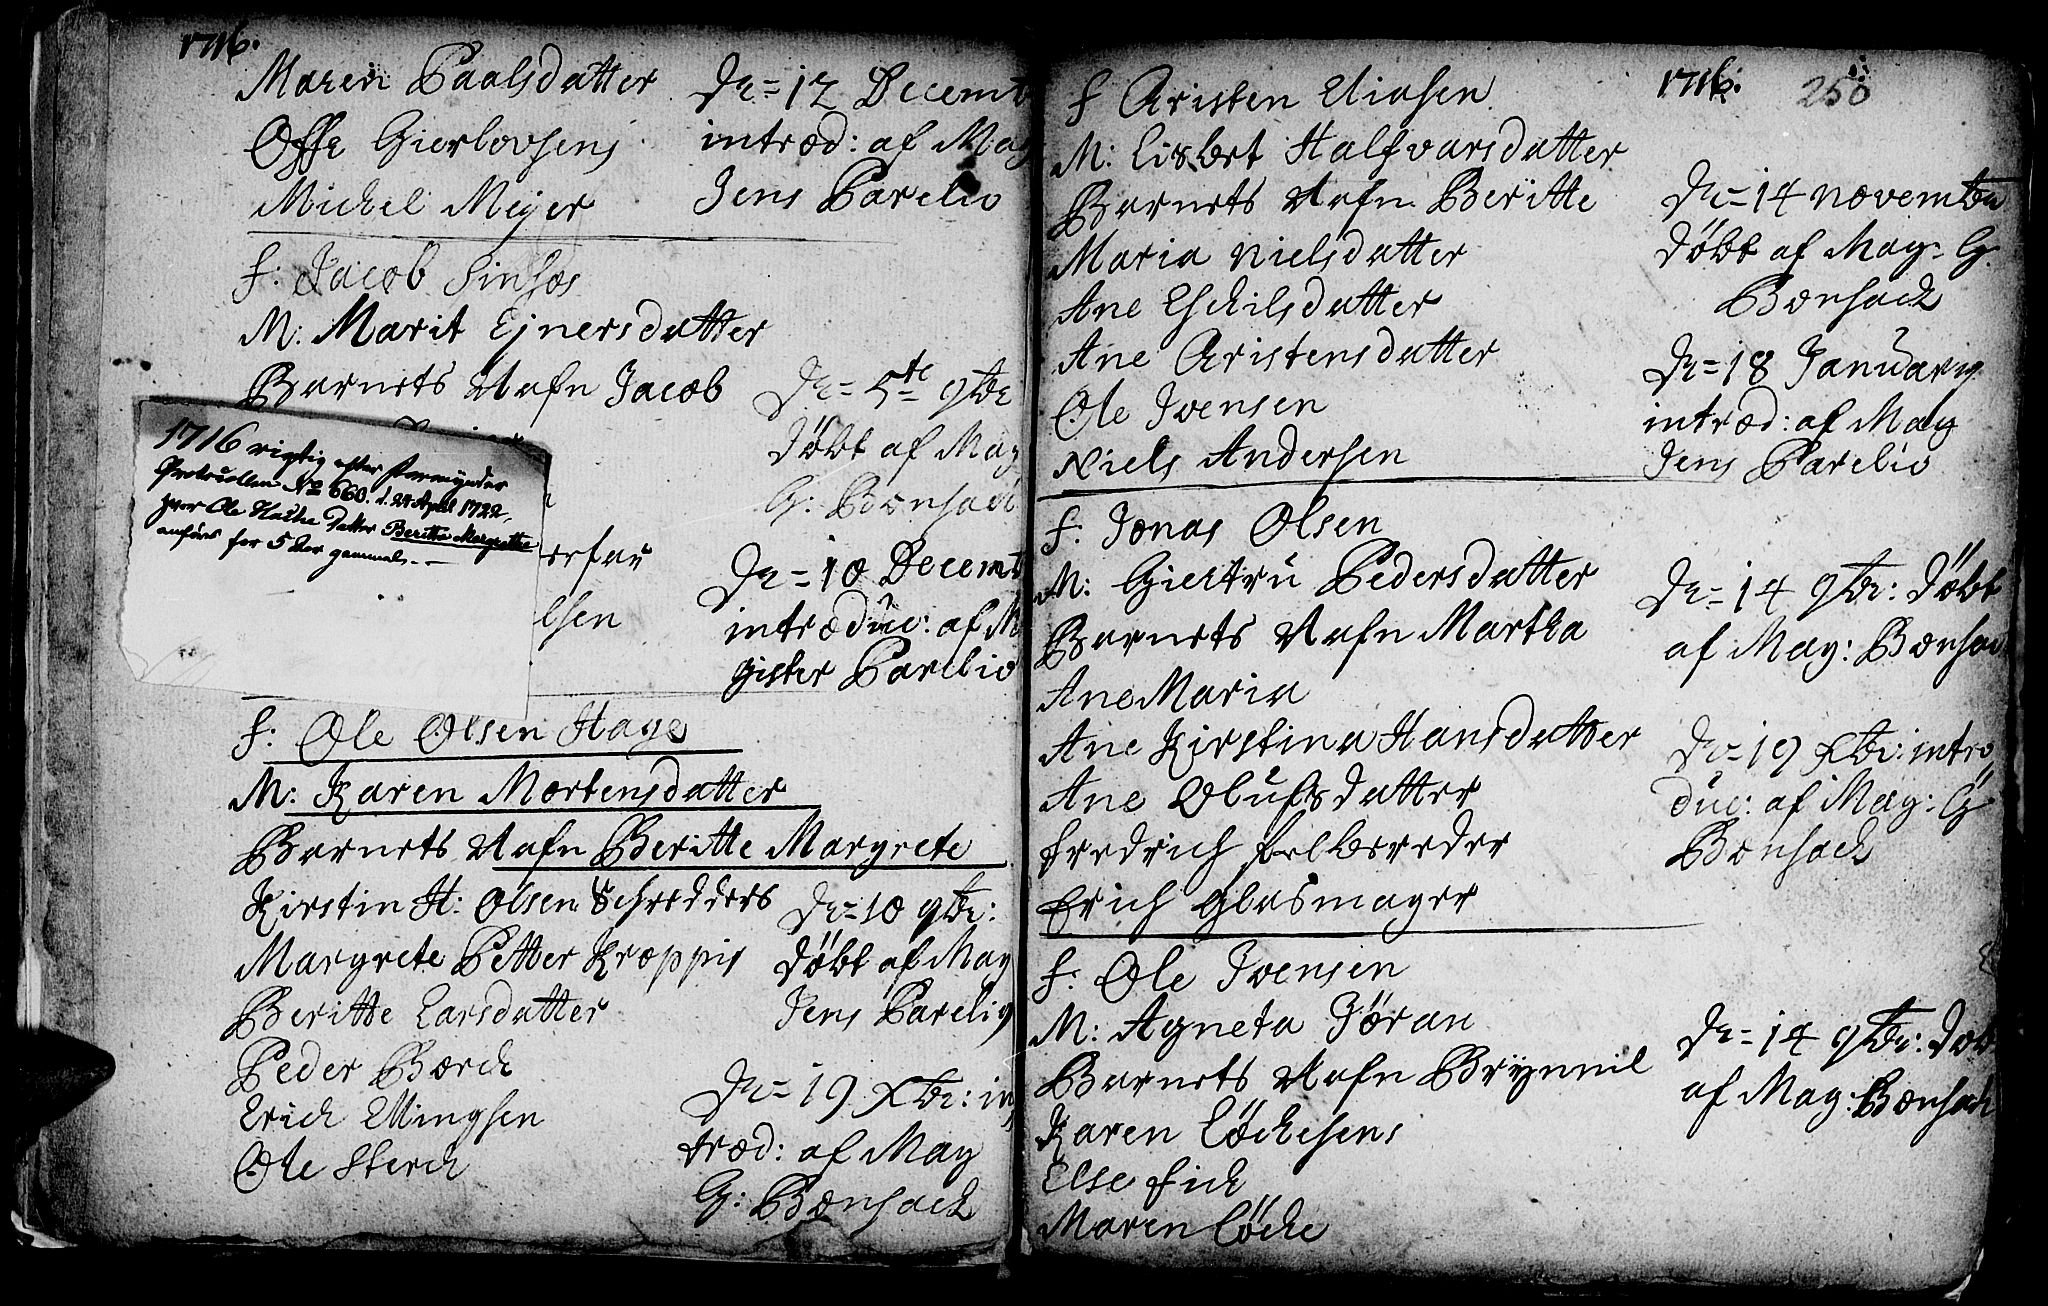 1716.
Maren Paalsdatter
Offe Gierlovsens
Michel Meyer
Dn = 12 Decemb
introd: af Mag
Jens Parelio
F: Jacob
M: Marit Ejnersdatter
Barnets Nafn Jacob
Dn = 5te 9br
döbt af Mag
G: Bonsack
1716 rigtig efter Formynder
Protocollen No 660. d. 24 April 1722,
hvor Ole Datter Beritte Margrethe
anføres for 5 Aar gammel. -
lsen
Dn = 10 Decemb
introduc: af M
gister Parelio
F: Ole Olsen Hage
M: Karen Mortensdatter
Barnets Nafn Beritte Margrete
Kirstin H: Olsen Schredders
Margrete Petter Kroppis
Beritte Larsdatter
Peder Borck
Erich Ellingsen
Ole Sterck
Dn = 10 9br:
döbt af Mag
Jens Parelio
Dn = 19 Xbr: in
trod: af Mag
G: Bonsack
1716.
250
F Cristen Eliasen
M: Lisbet Halfvarsdatter
Barnets Nafn Beritte
Maria Nielsdatter
Ane Eschilsdatter
Ane Cristensdatter
Ole Ivensen
Niels Andersen
Dn = 14 November
döbt af Mag = G.
Bonsack
Dn = 18 Januarij
introd: af Mag
Jens Parelio
F: Jonas Olsen
M: Giertru Pedersdatter
Barnets Nafn Martha
Ane Maria
Ane Kirstina Hansdatter
Ane Olufsdatter
Fredrich Felbereder
Erich Glasmager
Dn = 14 9br: döbt
af Mag: Bonsac
Dn = 19 Xbr: intro
duc: af Mag: G
Bonsack
F: Ole Ivensen
M: Agneta Jöran
Barnets Nafn Brynnil
Karen Löchesens
Else Fick
Maren Löche
Dn = 14 9br: döb
af Mag: Bonsack